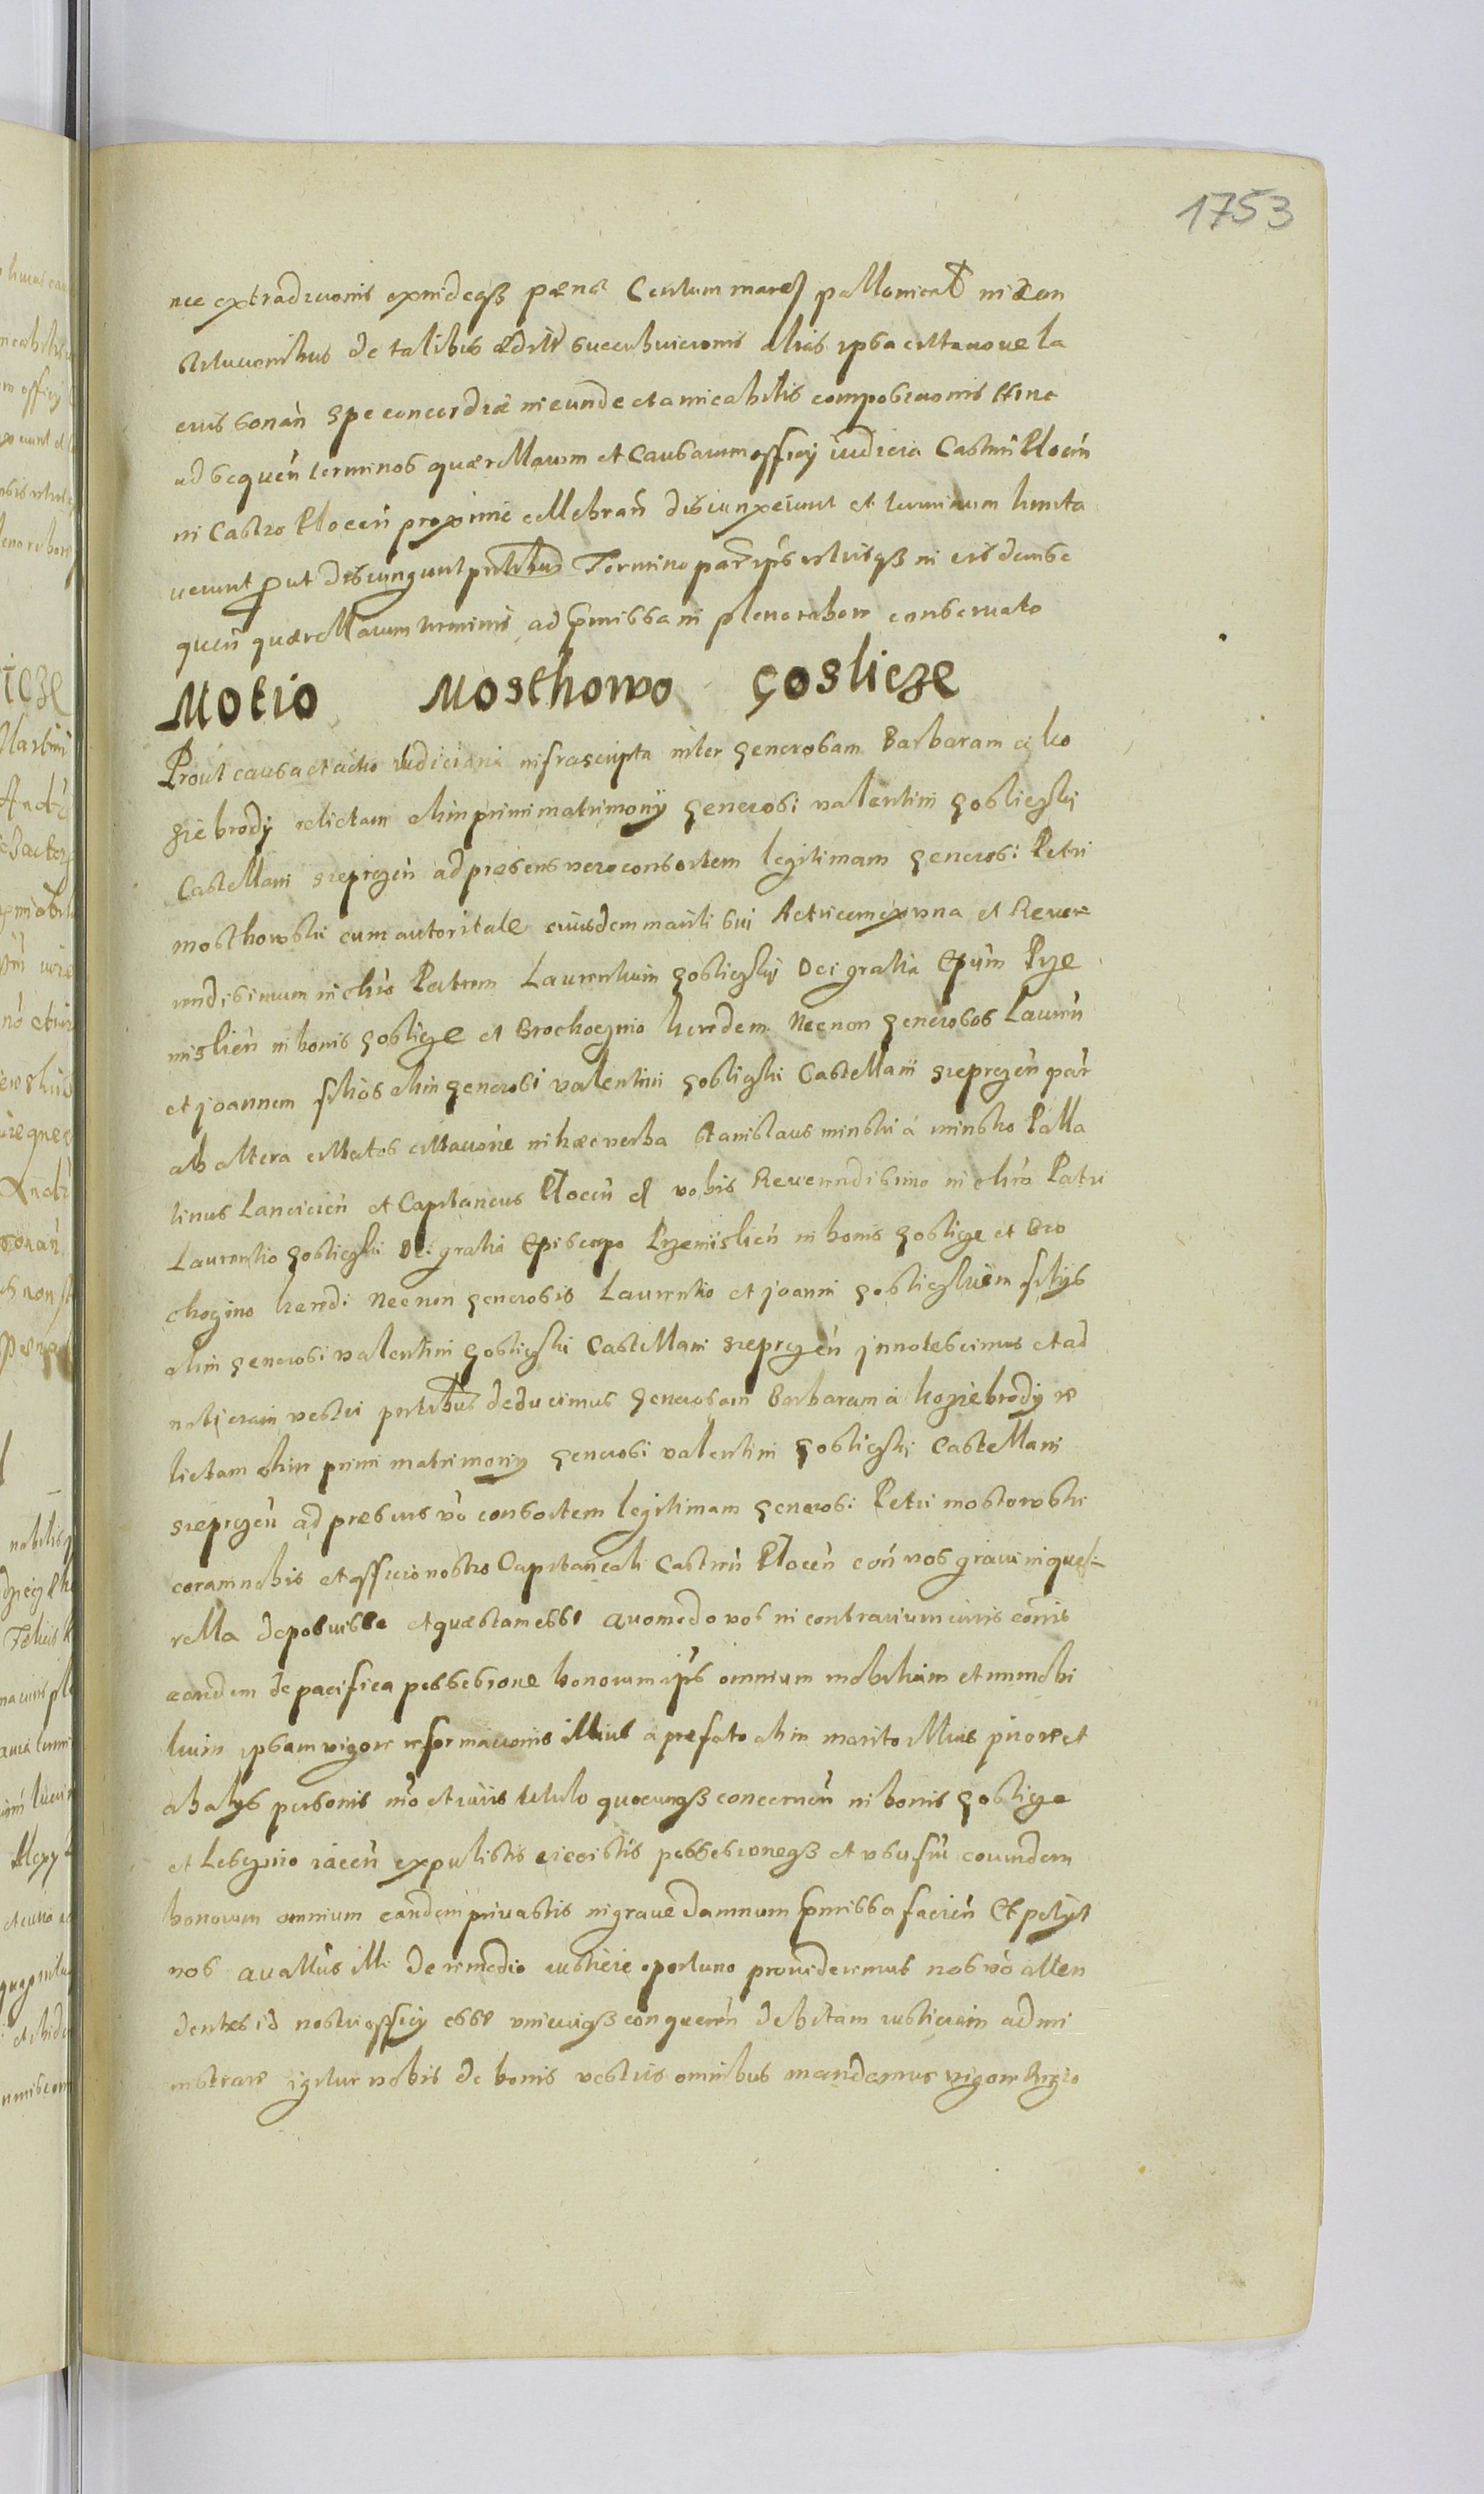 1753
nec extradicionis exnideqß pænæ Centum marcȝ pallonicał in con
stitucionibus de talibus ædit succubuicionis alias ipsa cittacione la
cius sonań spe concordiæ ineundæ et amicabilis compositionis hinc
ad sequeń terminos quærellarum et Causarum officij iudicia Castrń Płoceń
in Castro Płoceń proxime cellebrań disiunxerunt et terminum limita
uerunt put disiungunt pntibus Termino parłibus utrisqß in eisdem se
queń quærellarum terminis ad pmissa in pleno robore conseruato
Motio Mosthowo Goslicze
Prout causa et actio iudiciaria infrascripta inter generosam Barbaram a ko
ziebrody relictam olim primi matrimonÿ generosi valentini gosliczki
Castellani sieprczeń ad præsens vero consortem legitimam generosi Petri
mosthowski cum autoritate eiusdem mariti sui Actricem ex vna et Reuere
ndissimum in chrō Patrem Laurentium goslicȝkij Dei gratia Epūm Prze
mislień in bonis goslicze et Brochoczino heredem Necnon generosos Laureń
et joannem filios olim generosi valentini goslicȝki Castellani sieprczeń pār
ab altera cittatos cittacione in hæc verba Stanislaus minski á minsko Palla
tinus Lancicień et Capitaneus Płoceń et vobis Reuerendissimo in chrō Patri
Laurentio goslicȝki Dei gratia Episcopo Przemislień in bonis goslicze et Bro
choczino heredi Necnon generosis Laurentio et joanni goslicȝkiem filÿs
olim generosi valentini goslicȝki Castellani sieprczeń jnnotescimus et ad
noticiam vestri pntibus deducimus generosam Barbaram á koziebrodÿ re
lictam olim primi matrimonÿ generosi valentini goslicȝkij Castellani
sieprczeń ad præsens vō consortem legitimam generosi Petri mostowski
coram nobis et officio nostro Capitaneali Castreń Płoceń coń vos graui in quæ=
rella deposuisse et quæstam esse quomodo vos in contrarium iuris coīs
eandem de pacifica possessione bonorum ipīs omnium mobilium et immobi
lium ipsam vigore reformacionis illius a prefato olim marito illius priore et
ab alÿs personis mō et iuris titulo quocunqß concerneń in bonis goslicze
et Lesczino iaceń expulistis eiecistis possessioneqß et vsufru eorundem
bonorum omnium eandem priuastis in graue damnum pmissa facień Et petÿt
nos quattus illi de remedio iusticie oportuno prouideremus nos vō atten
dentes id nostri officij esse vnicuiqß conquereń debitam iusticiam admi
nistrare igitur vobis de bonis vestris omnibus mandamus vigore Regio